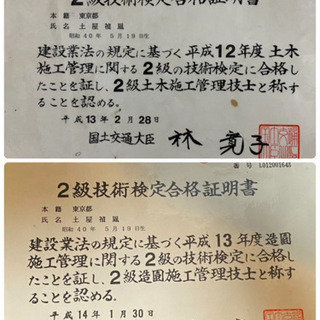 2級技術検定合格証明書
本籍 東京都
氏名 土屋禎嵐
昭和40年5月19日生
建設業法の規定に基づく平成12年度土木
施工管理に関する2級の技術検定に合格し
たことを証し、2級土木施工管理技士と称す
ることを認める。
平成13年2月28日
国土交通大臣 林 寛子
番号 L012001643
2級技術検定合格証明書
本籍 東京都
氏名 土屋禎嵐
昭和40年5月19日生
建設業法の規定に基づく平成13年度造園
施工管理に関する2級の技術検定に合格し
たことを証し、2級造園施工管理技士と称す
ることを認める。
平成14年1月30日